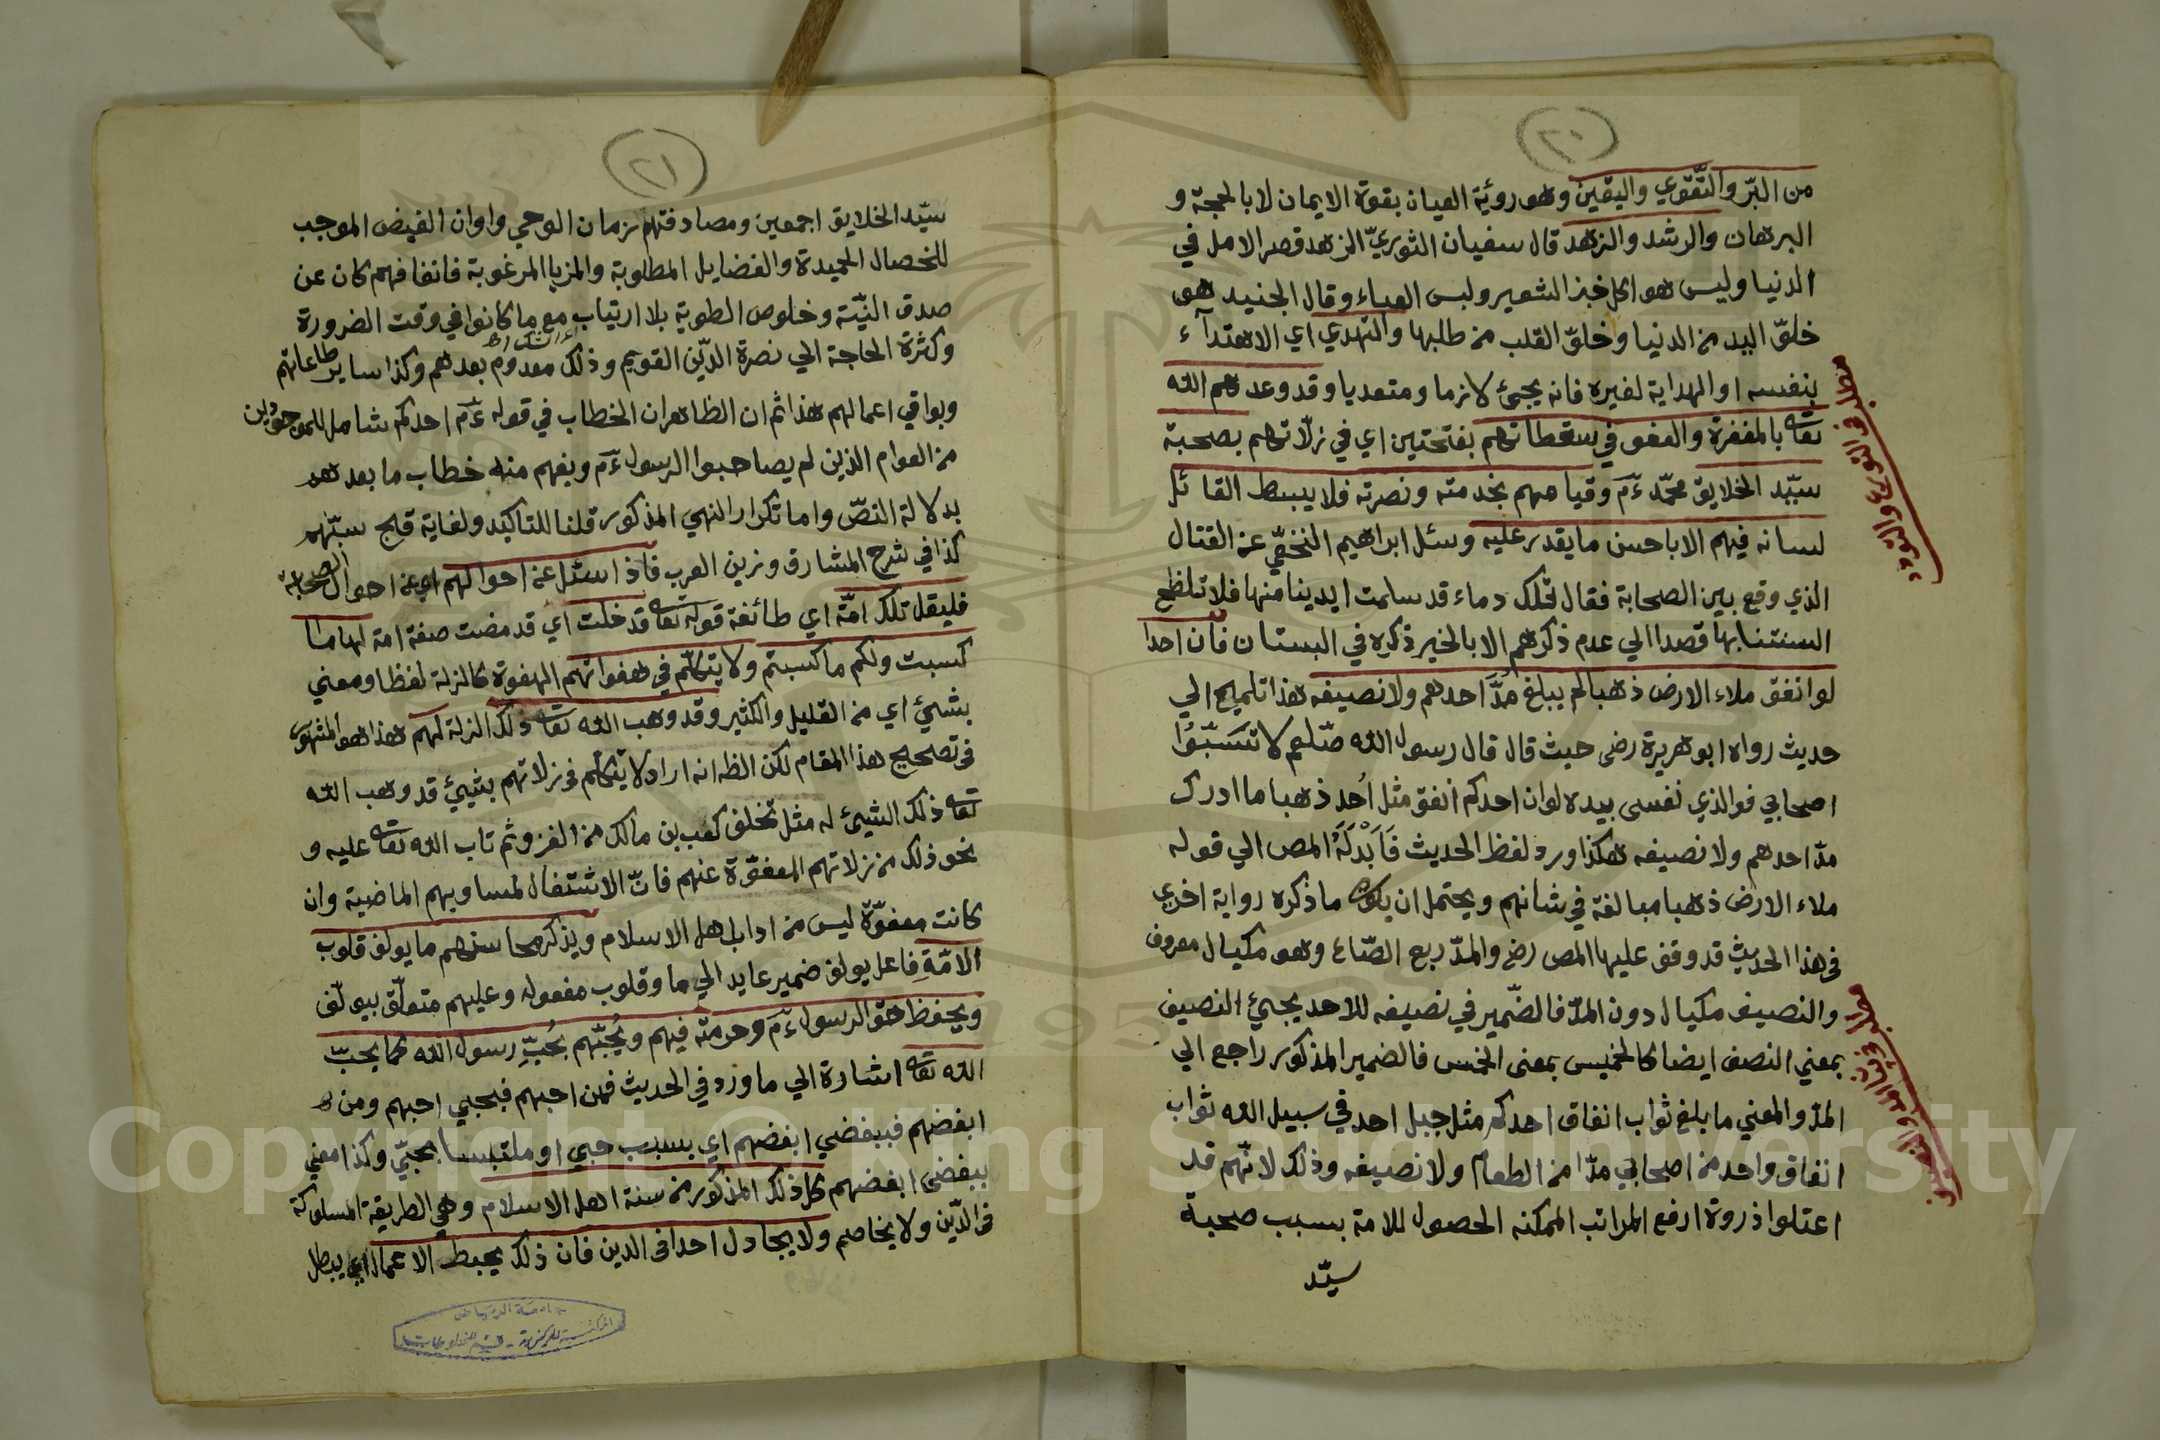 (٢٠)
من البرّ والتّقوي واليقين وهو رؤية العيان بقوة الايمان لا بالحجة و
البرهان والرشد والزهد قال سفيان الثوريّ الزهد قصر الامل في
الدنيا وليس هو اكل خبز الشعير ولبس العباء وقال الجنيد هو
خلوّ اليد من الدنيا وخلوّ القلب من طلبها والتهدي اي الاهتدآء
بنفسه او الهداية لغيره فانه يجيئ لازما ومتعديا وقد وعدهم الله
تعالى بالمغفرة والعفو في سقطاتهم بفتحتين اي في زلاتهم بصحبة
سيّد الخلايق محمّد عم وقيامهم بخدمته ونصرته فلا يبسط القائل
لسانه فيهم الا باحسن ما يقدر عليه وسئل ابراهيم النخعيّ عن القتال
الذي وقع بين الصحابة فقال تلك دماء قد سلمت ايدينا منها فلا تلطخ
السنتنا بها قصدا الي عدم ذكرهم الا بالخير ذكره في البستان فان احدا
لو انفق ملاء الارض ذهبا لم يبلغ مُدَّ احدهم ولا نصيفه هذا تلميح الي
حديث رواه ابو هريرة رضى حيث قال قال رسول الله صلعم لا تَسَبّوُا
اصحابي فو الذي نفسى بيده لو ان احدكم انفق مثل اُحد ذهبا ما ادرك
مدّ احدهم ولا نصيفه هكذا ورد لفظ الحديث فَاَبْدَلَهُ المص الي قوله
ملاء الارض ذهبا مبالغة في شانهم ويحتمل ان يكون ما ذكره رواية اخري
فى هذا الحديث قد وقف عليها المص رضى والمدّ ربع الصّاع وهو مكيال معروف
والنصيف مكيال دون المدّ فالضّمير في نصيفه للاحد يجيئ النصيف
بمعني النصف ايضا كالخميس بمعنى الخمس فالضمير المذكور راجع الي
المدّ والمعني ما بلغ ثواب انفاق احدكم مثل جبل احد في سبيل الله ثواب
انفاق واحد من اصحابي مدّا من الطعام ولا نصيفه وذلك لانّهم قد
اعتلوا ذروة ارفع المراتب الممكنه الحصول للامة بسبب صحبة
سيّد
مطلب فى
مطلب فى بيان المدّ والنصيف
(٢١)
سيّد الخلايق اجمعين ومصادفتهم زمان الوحي واوان الفيض الموجب
للخصال الحميدة والفضايل المطلوبة والمزيا المرغوبة فانفاقهم كان عن
صدق النيّة وخلوص الطوية بلا ارتياب مع ما كانوا في وقت الضرورة
وكثرة الحاجة الي نصرة الدّين القويم وذلك معدوم بعدهم وكذا ساير طاعاتهم
وبواقي اعمالهم هذا ثم ان الظاهر ان الخطاب في قوله عم احدكم شامل للموجودين
من العوام الذين لم يصاحبوا الرسول عم ويفهم منه خطاب ما بعدهم
بدلالة النصّ واما تكرار النهي المذكور قلنا للتاكيد ولغاية قبح سبّهم
كذا في شرح المشارق وزين العرب فاذا سئل عن احوالهم اي عن احوال الصحابة
فليقل تلك امّة اي طائفة قوله تعالى قد خلت اي قد مضت صفة امة لها ما
كسبت ولكم ما كسبتم ولا يتكلّم في هفواتهم الهفوة كالزلة لفظا ومعني
بشيئ اي من القليل والكثير وقد وهب الله تعالى ذلك الزلة لهم هذا هو المشهور
فى تصحيح هذا المقام لكن الظ انه اراد لا يتكلم فى زلاتهم بشيئ قد وهب الله
تعالى ذلك الشيئ له مثل تخلف كعب بن مالك من الغزو ثم تاب الله تعالى عليه و
نحو ذلك من زلاتهم المعفوّة عنهم فانّ الاشتغال لمساويهم الماضية وان
كانت معفوّة ليس من اداب اهل الاسلام ويذكر محاسنهم ما يولف قلوب
الامّةِ فاعل يولف ضمير عايد الي ما وقلوب مفعوله وعليهم متعلّق بيولّف
ويحفظ حقّ الرسول عم وحرمته فيهم ويُحِبّهم بحُبِّ رسول الله كما يحبّ
الله تعالى اشارة الي ما ورد في الحديث فمن احبهم فبحبي احبهم ومن
ابغضهم فببغضي ابغضهم اي بسبب حبي او ملتبسا بحبّي وكذا معني
ببغضى ابغضهم كل ذلك المذكور من سنة اهل الاسلام وهي الطريقة المسلوكة
فى الدّين ولا يخاصم ولا يجادل احدا فى الدين فان ذلك يحبط الاعمال اي يبطل
جامعة الرياض
المكتبة المركزية - قسم المخطوطات
Copyright © King Saud University